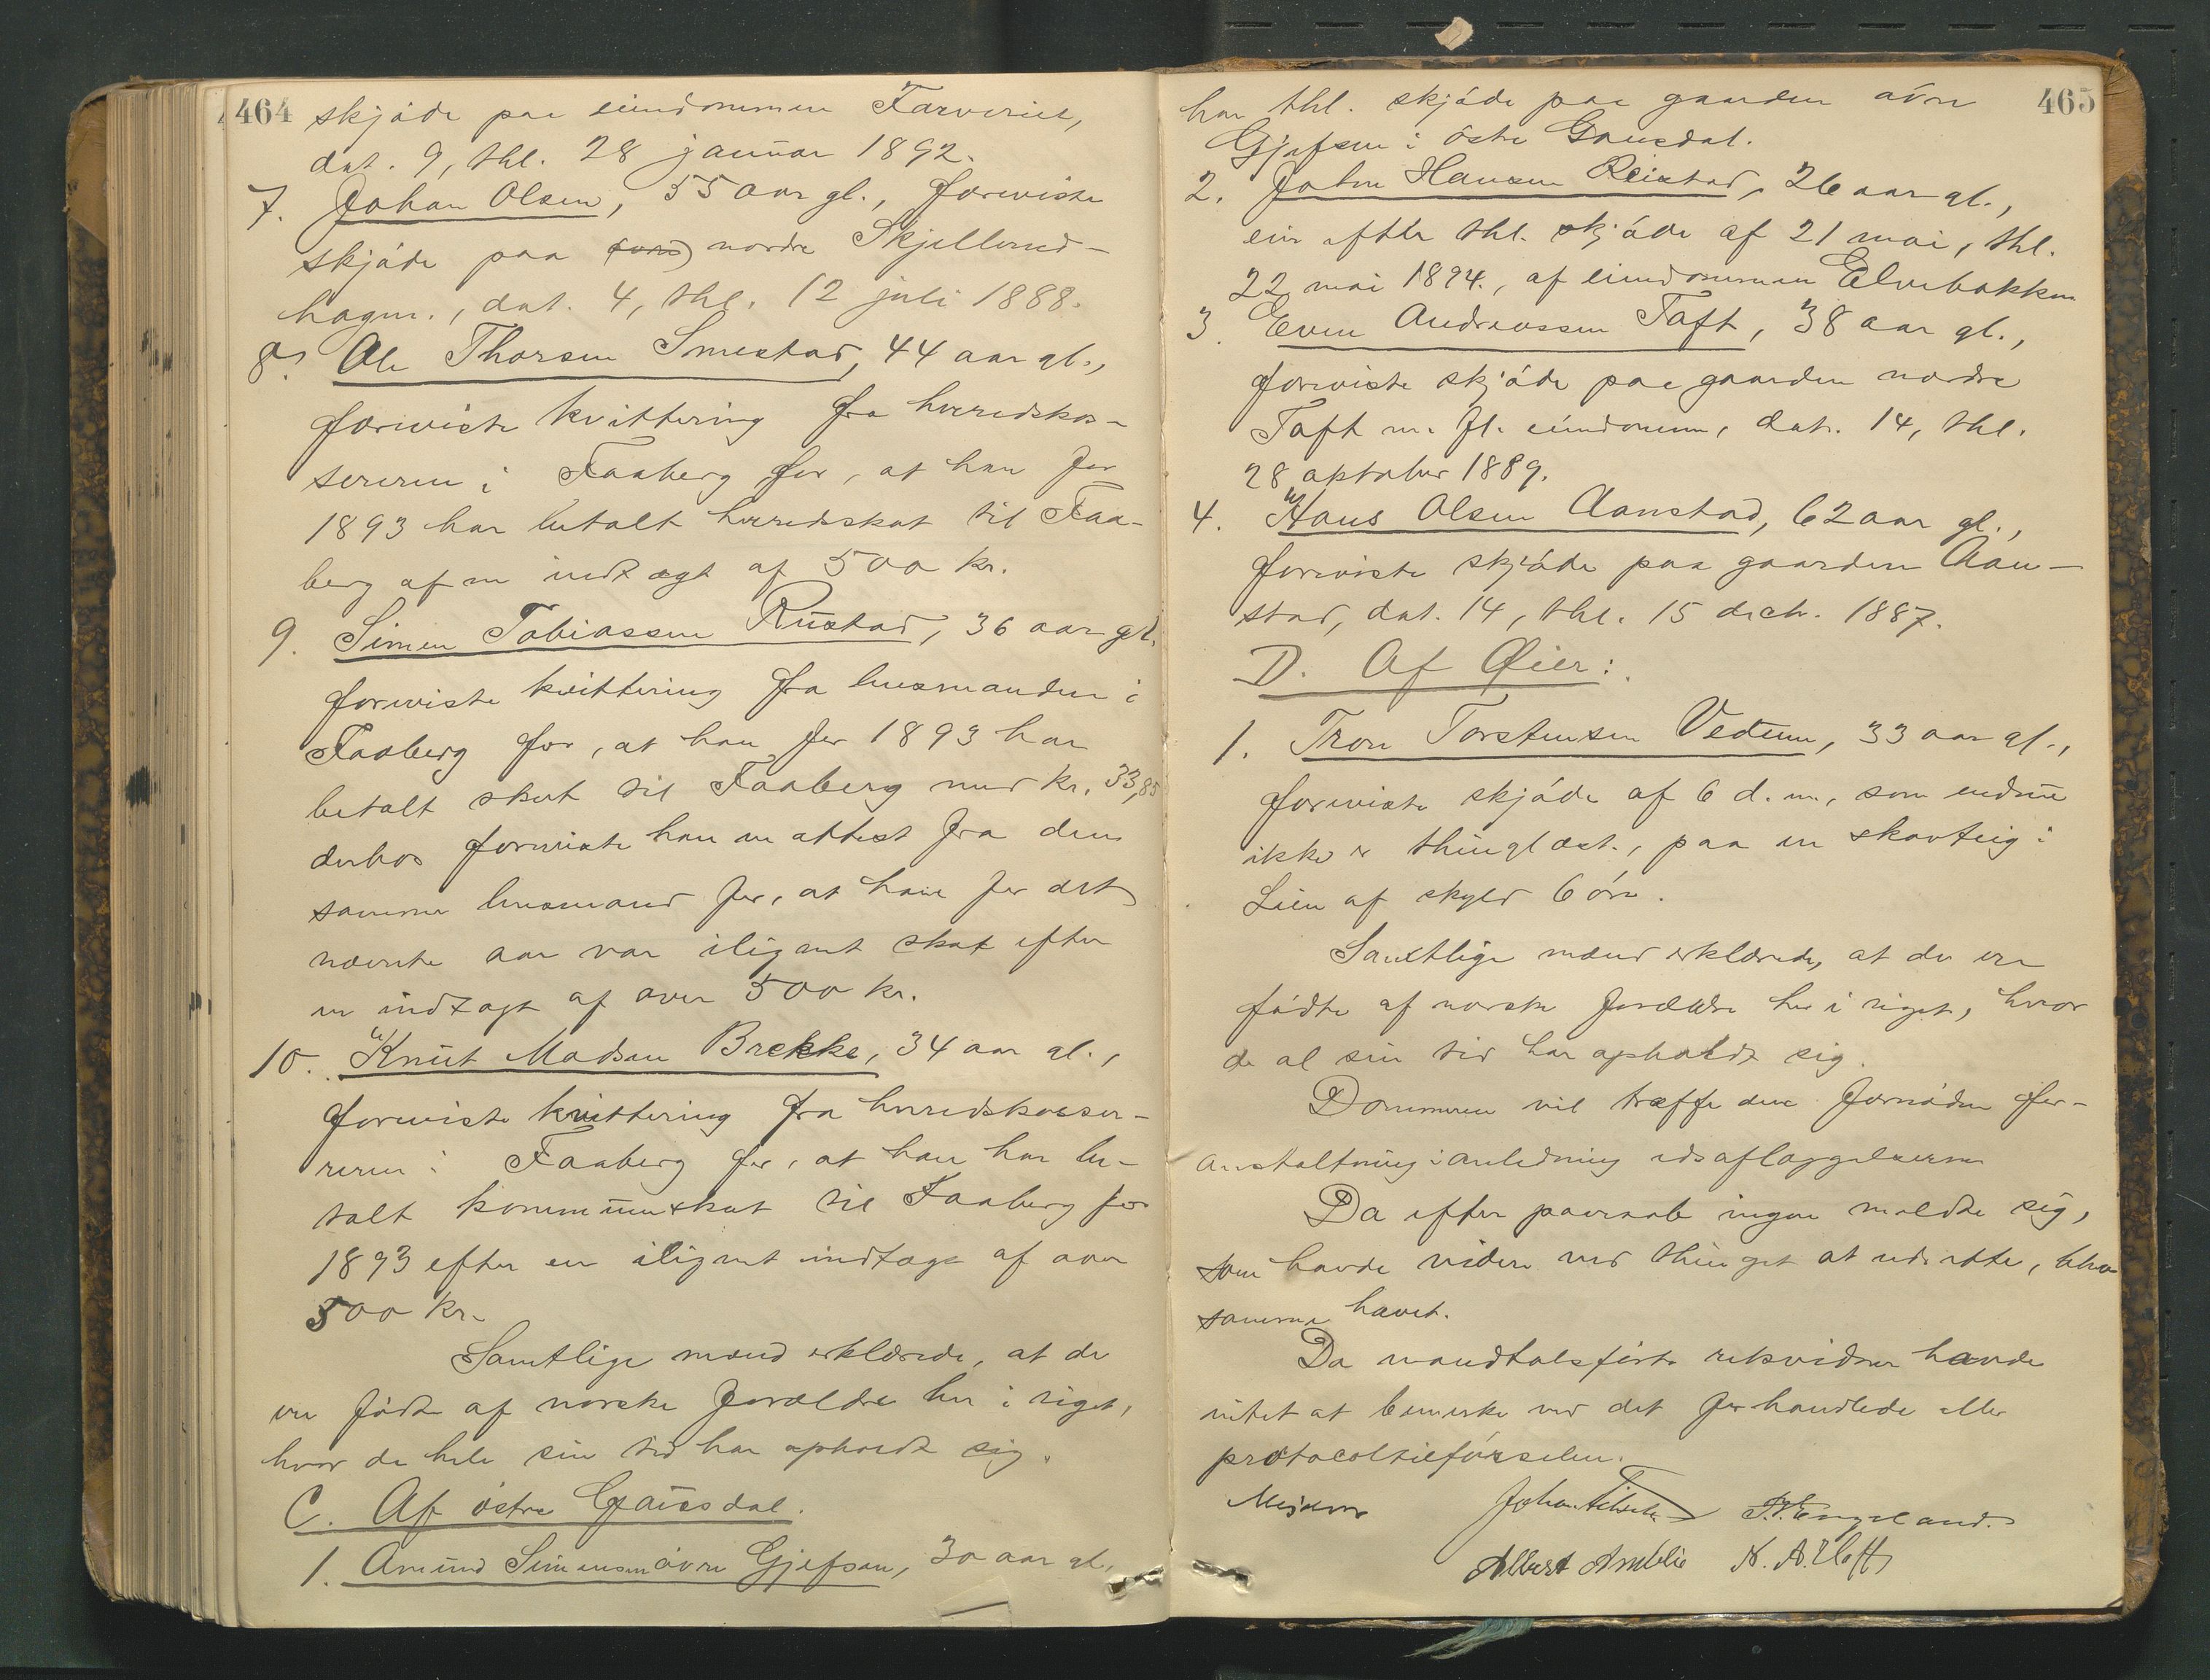 464
skjøde paa eiendommen Farveriet,
dat. 9, thl. 28 januar 1892.
7. Johan Olsen, 55 aar gl., foreviste
skjøde paa nordre Skjellerud-
hagen., dat. 4, thl. 12 juli 1888.
8. Ole Thorsen Smestad, 44 aar gl.,
foreviste kvittering fra herredskas-
sereren i Faaberg for, at han for
1893 har betalt herredsskat til Faa-
berg af en indtægt af 500 kr.
9. Simen Tobiassen Rustad, 36 aar gl.
foreviste kvittering fra lensmanden i
Faaberg for, at han for 1893 har
betalt skat til Faaberg med kr. 33,85
derhos foreviste han en attest fra den
samme lensmand for, at han for det
nævnte aar var ilignet skat efter
en indtægt af over 500 kr.
10. Knut Madsen Brekke, 34 aar gl.,
foreviste kvittering fra herredskasse-
reren i Faaberg for, at han har be-
talt kommuneskat til Faaberg for
1893 efter en ilignet indtægt af over
500 kr.
Samtlige mænd erklærede, at de
ere fødte af norske forældre her i riget,
hvor de hele sin tid har opholdt sig.
C. Af østre Gausdal.
1. Amund Simensen øvre Gjefsen, 30 aar gl.,
465
har thl. skjøde paa gaarden øvre
Gjefsen i østre Gausdal.
2. Johan Hansen Reistad, 26 aar gl.,
eier efter thl. skjøde af 21 mai, thl.
22 mai 1894., af eiendommen Elvebakken
3. Even Andreassen Toft, 38 aar gl.,
foreviste skjøde paa gaarden nordre
Toft m. fl. eiendomme, dat. 14, thl.
28 oktober 1889.
4. Hans Olsen Aanstad, 62 aar gl.,
foreviste skjøde paa gaarden Aan-
stad, dat. 14, thl. 15 decbr. 1887.
D. Af Øier:
1. Tron Torstensen Vedum, 33 aar gl.,
foreviste skjøde af 6 d. m., som endnu
ikke er thinglæst., paa en skovteig i
Lien af skyld 6 øre.
Samtlige mænd erklærede, at de ere
fødte af norske forældre her i riget, hvor
de al sin tid har opholdt sig.
Dommeren vil træffe den fornødne for-
anstaltning i anledning edsaflæggelserne
Da efter paaraab ingen meldte sig,
som havde videre ved thinget at udrette, blev
samme hævet.
Da mandtalsførte retsvidner havde
intet at bemerke ved det forhandlede eller
protocoltilførselen.
Mejdell Johan
Engeland.
Albert